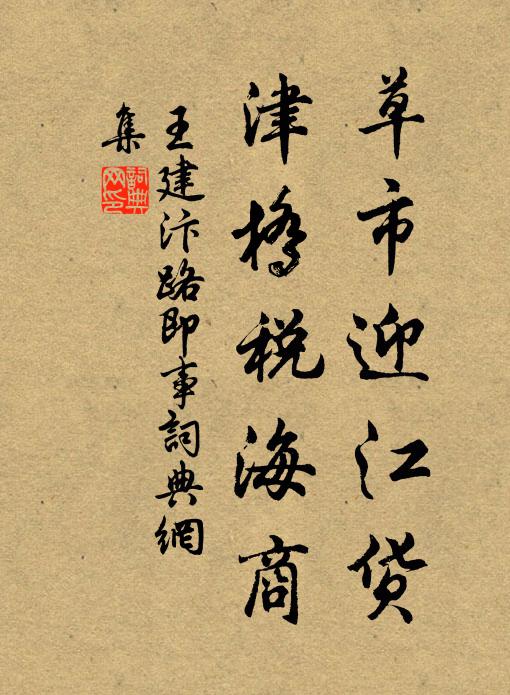 草市迎江货
津桥税海商
王建汴路即事詞典網
集
詞典网印